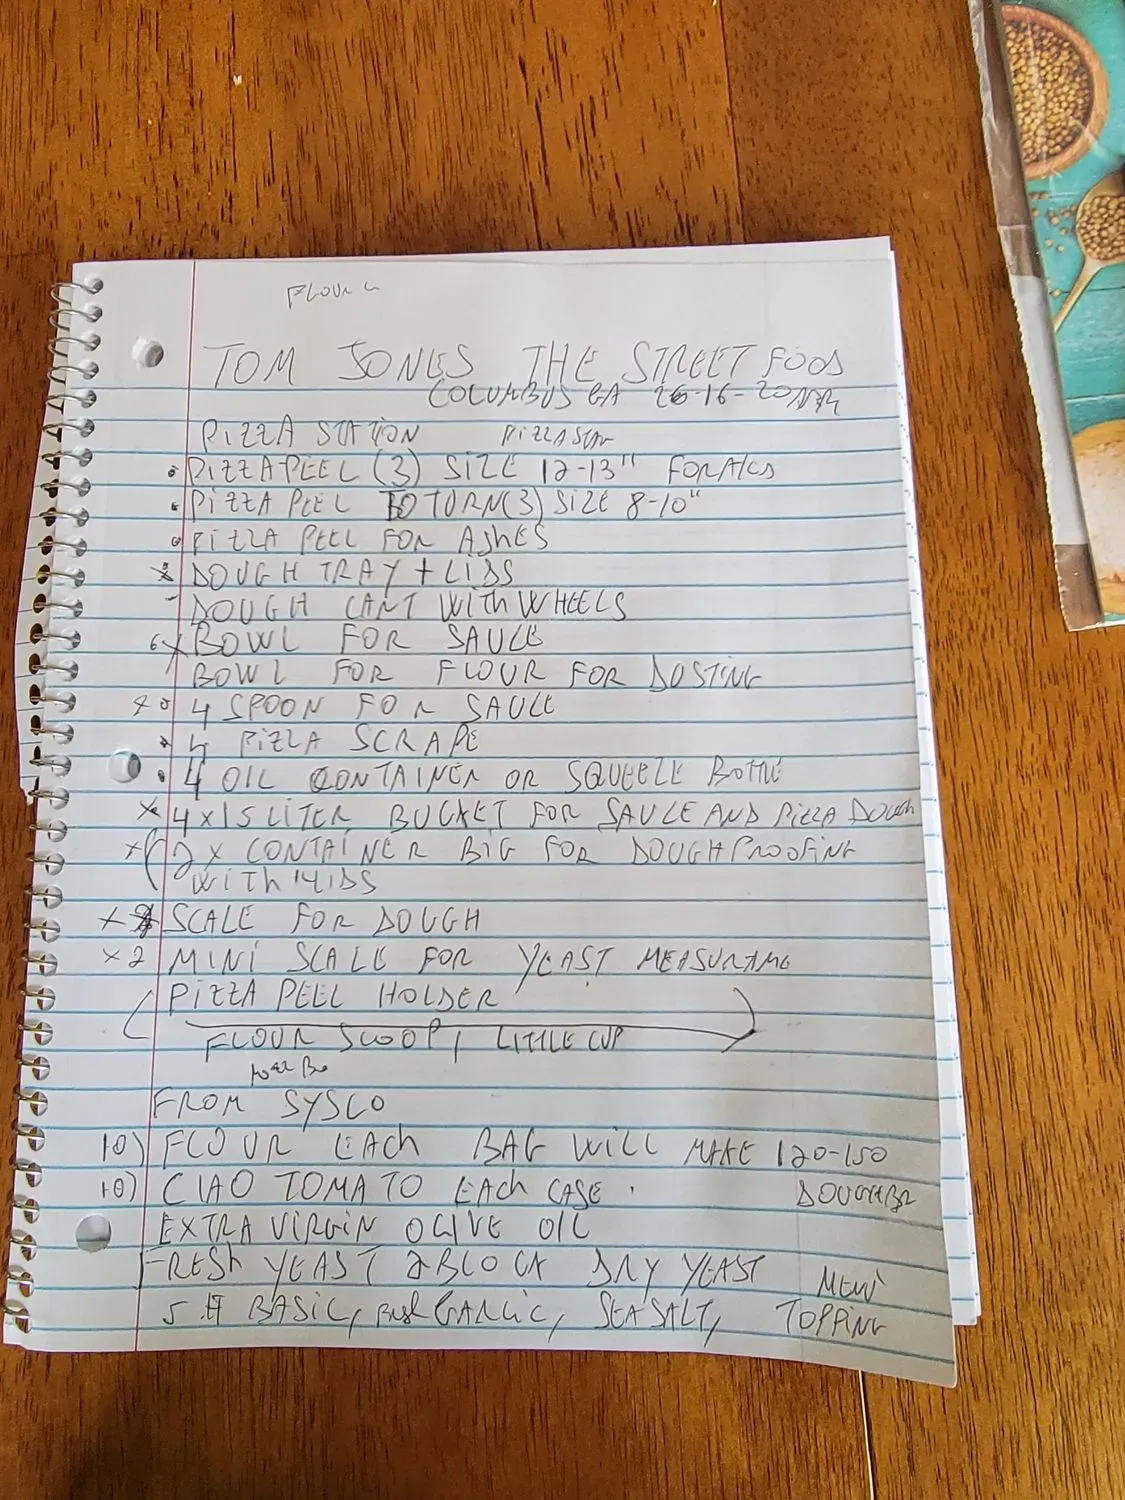 FLOUR
TOM JONES THE STREET FOOD
COLUMBUS GA 26-16-20
PIZZA STATION
PIZZA PEEL (3) SIZE 12-13"
PIZZA PEEL TO TURN (3) SIZE 8-10"
PIZZA PEEL FOR ASHES
DOUGH TRAY + LIDS
DOUGH CART WITH WHEELS
6 X BOWL FOR SAUCE
BOWL FOR FLOUR FOR DUSTING
4 SPOON FOR SAUCE
4 PIZZA SCRAPE
4 OIL CONTAINER OR SQUEEZE BOTTLE
X 4 x 15 LITER BUCKET FOR SAUCE AND PIZZA DOUGH
X 2 X CONTAINER BIG FOR DOUGH PROOFING
WITH LIDS
X SCALE FOR DOUGH
X 2 MINI SCALE FOR YEAST
PIZZA PEEL HOLDER
FLOUR SCOOP, LITTLE CUP
FROM SYSCO
10) FLOUR EACH BAG WILL MAKE 120-150
10) CIAO TOMATO EACH CASE.
EXTRA VIRGIN OLIVE OIL
FRESH YEAST 2 BLOCK DRY YEAST
5 # BASIC, GARLIC, SEA SALT, TOPPING